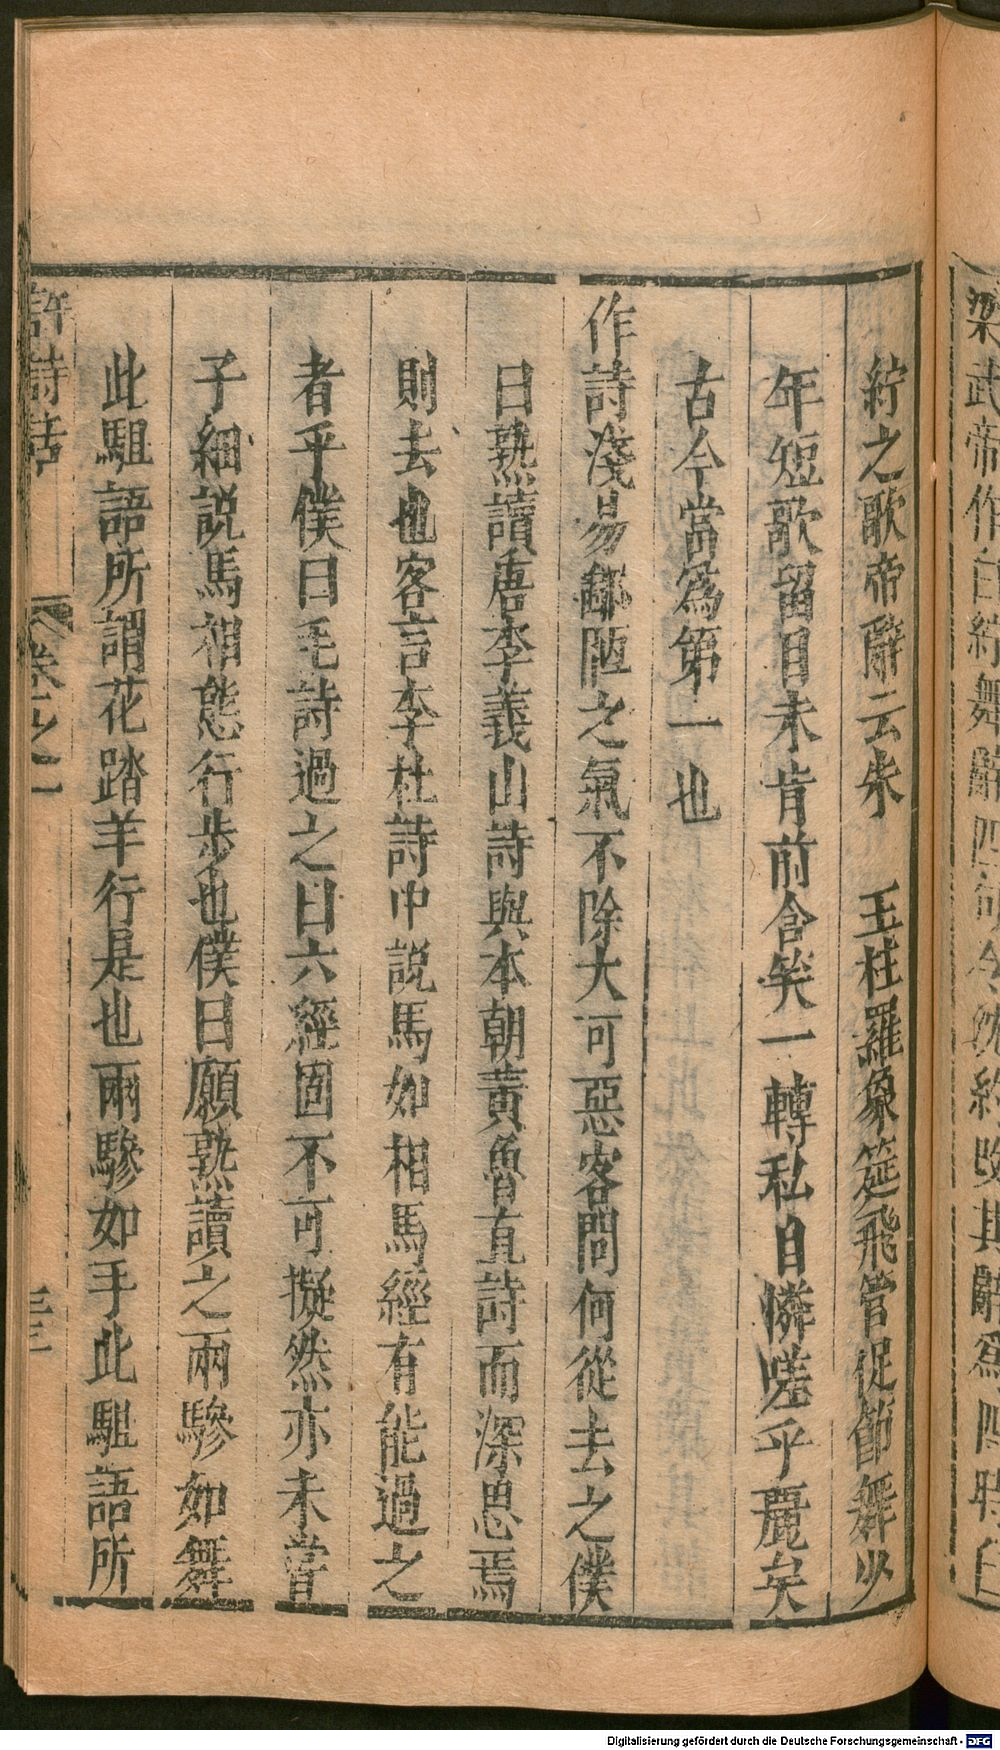 梁武帝作白紵舞辭四句令沈約改其辭爲四時白
紵之歌帝辭云朱　玉柱羅象筵飛管促節舞少
年短歌留目未肯前含笑一轉私自憐嗟乎麗矣
古今當爲第一也
作詩淺易鄙陋之氣不除大可惡客問何從去之僕
曰熟讀唐李義山詩與本朝黃魯直詩而深思焉
則去也客言李杜詩中説馬如相馬經有能過之
者乎僕曰毛詩過之曰六經固不可擬然亦未嘗
子細説馬相態行步也僕曰願熟讀之兩驂如舞
此駔語所謂花踏羊行是也兩驂如手此駔語所
許詩話
卷之一
三
Digitalisierung gefördert durch die Deutsche Forschungsgemeinschaft - DFG